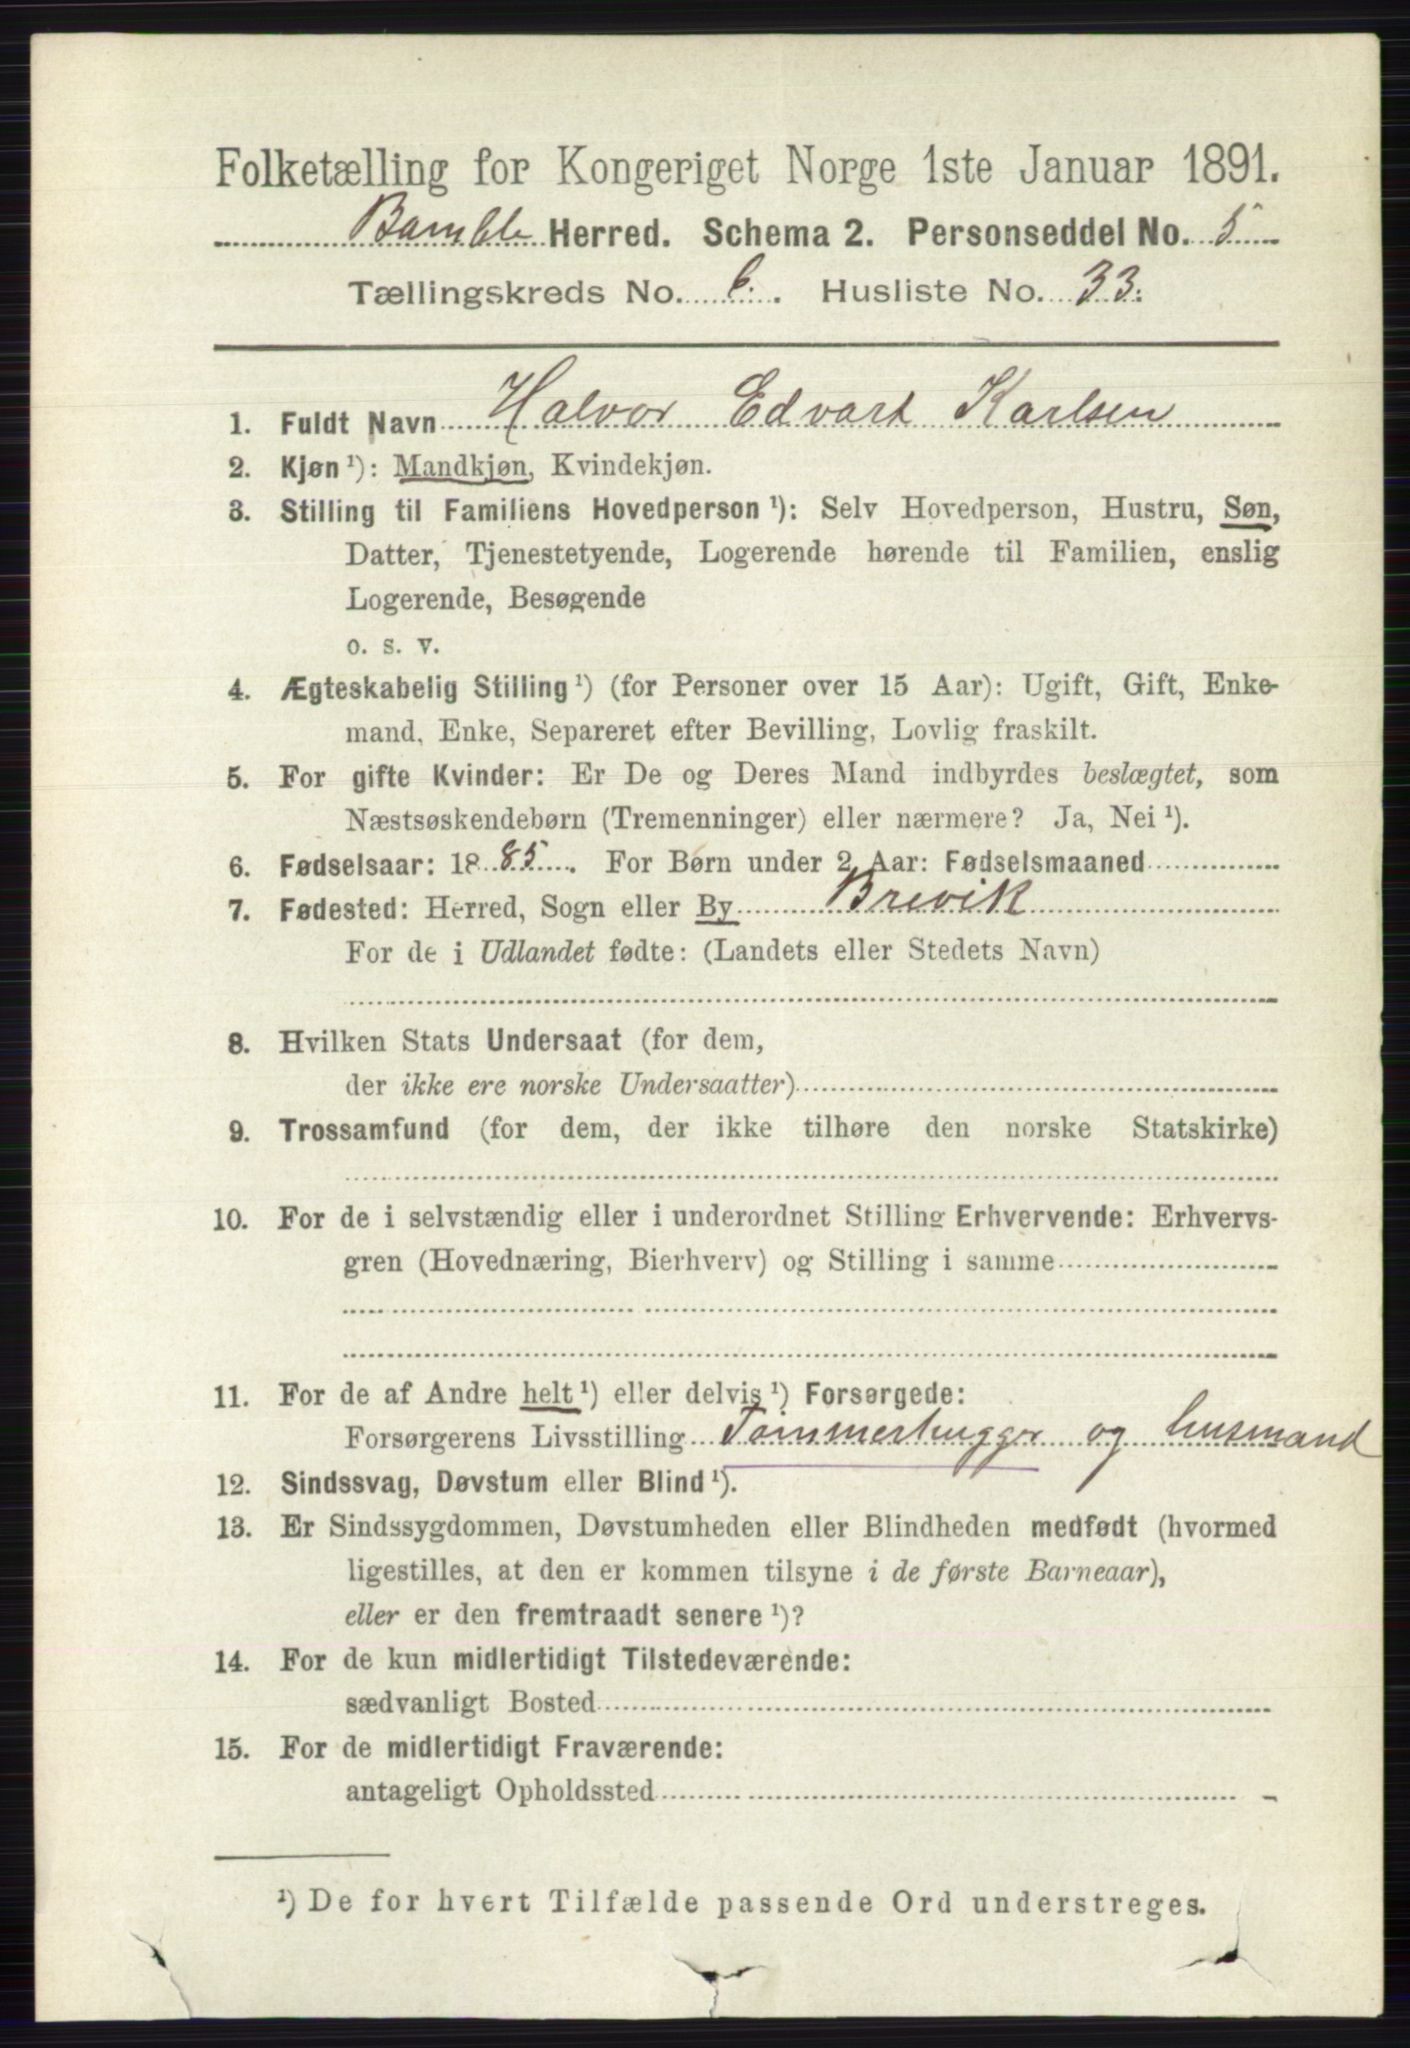 Folketælling for Kongeriget Norge 1ste Januar 1891.
Bamble Herred. Schema 2. Personseddel No. 5
Tællingskreds No. 6. Husliste No. 33.
1. Fuldt Navn Halvor Edvart Karlsen
2. Kjøn ¹): Mandkjøn, Kvindekjøn.
3. Stilling til Familiens Hovedperson ¹): Selv Hovedperson, Hustru, Søn,
Datter, Tjenestetyende, Logerende hørende til Familien, enslig
Logerende, Besøgende
o. s. v.
4. Ægteskabelig Stilling ¹) (for Personer over 15 Aar): Ugift, Gift, Enke-
mand, Enke, Separeret efter Bevilling, Lovlig fraskilt.
5. For gifte Kvinder: Er De og Deres Mand indbyrdes beslægtet, som
Næstsøskendebørn (Tremenninger) eller nærmere? Ja, Nei ¹).
6. Fødselsaar: 1885. For Børn under 2 Aar: Fødselsmaaned
7. Fødested: Herred, Sogn eller By Brevik
For de i Udlandet fødte: (Landets eller Stedets Navn)
8. Hvilken Stats Undersaat (for dem,
der ikke ere norske Undersaatter)
9. Trossamfund (for dem, der ikke tilhøre den norske Statskirke)
10. For de i selvstændig eller i underordnet Stilling Erhvervende: Erhvervs-
gren (Hovednæring, Bierhverv) og Stilling i samme
11. For de af Andre helt ¹) eller delvis ¹) Forsørgede:
Forsørgerens Livsstilling Tømmerhugger og husmand
12. Sindssvag, Døvstum eller Blind ¹).
13. Er Sindssygdommen, Døvstumheden eller Blindheden medfødt (hvormed
ligestilles, at den er kommen tilsyne i de første Barneaar),
eller er den fremtraadt senere ¹)?
14. For de kun midlertidigt Tilstedeværende:
sædvanligt Bosted
15. For de midlertidigt Fraværende:
antageligt Opholdssted
¹) De for hvert Tilfælde passende Ord understreges.